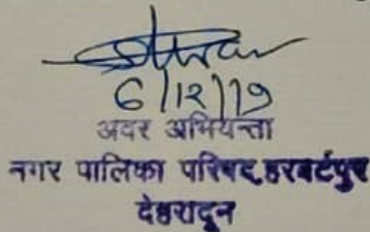 6/12/19
अवर अभियन्ता
नगर पालिका परिषद् हरबर्टपुर
देहरादून